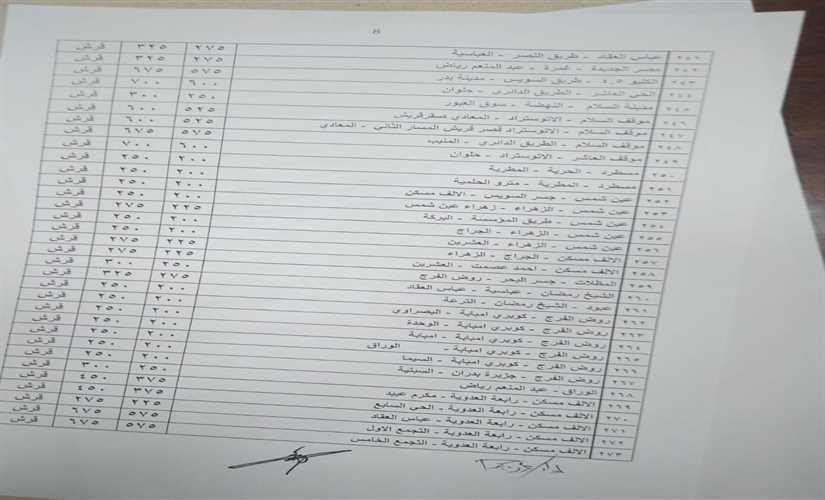 8
٢٤١ عباس العقاد - طريق النصر - العباسية ٢٧٥ ٣٢٥ قرش
٢٤٢ مصر الجديدة - غمرة - عبد المنعم رياض ٢٧٥ ٣٢٥ قرش
٢٤٣ الكيلو ٤.٥ - طريق السويس - مدينة بدر ٥٧٥ ٦٧٥ قرش
٢٤٤ الحى العاشر - الطريق الدائرى - حلوان ٦٠٠ ٧٠٠ قرش
٢٤٥ مدينة السلام - النهضة - سوق العبور ٢٥٠ ٣٠٠ قرش
٢٤٦ موقف السلام - الاتوستراد - المعادى صقرقريش ٥٢٥ ٦٠٠ قرش
٢٤٧ موقف السلام - الاتوستراد قصر قريش المسار الثانى - المعادى ٥٢٥ ٦٠٠ قرش
٢٤٨ موقف السلام - الطريق الدائرى - المنيب ٥٧٥ ٦٧٥ قرش
٢٤٩ موقف العاشر - الاتوستراد - حلوان ٦٠٠ ٧٠٠ قرش
٢٥٠ مسطرد - الحرية - المطرية ٢٠٠ ٢٥٠ قرش
٢٥١ مسطرد - المطرية - مترو الحلمية ٢٠٠ ٢٥٠ قرش
٢٥٢ عين شمس - جسر السويس - الالف مسكن ٢٠٠ ٢٥٠ قرش
٢٥٣ عين شمس - الزهراء - زهراء عين شمس ٢٠٠ ٢٥٠ قرش
٢٥٤ عين شمس - طريق المؤسسة - البركة ٢٢٥ ٢٧٥ قرش
٢٥٥ عين شمس - الزهراء - الجراج ٢٠٠ ٢٥٠ قرش
٢٥٦ عين شمس - الزهراء - العشرين ٢٠٠ ٢٥٠ قرش
٢٥٧ الالف مسكن - الجراج - الزهراء ٢٢٥ ٢٧٥ قرش
٢٥٨ الالف مسكن - احمد عصمت - العشرين ٢٢٥ ٢٧٥ قرش
٢٥٩ المظلات - جسر البحر - روض الفرج ٢٥٠ ٣٠٠ قرش
٢٦٠ الشيخ رمضان - عباسية - عباس العقاد ٢٧٥ ٣٢٥ قرش
٢٦١ عبود - الشيخ رمضان - الترعة ٢٠٠ ٢٥٠ قرش
٢٦٢ روض الفرج - كوبرى امبابة - البصراوى ٢٠٠ ٢٥٠ قرش
٢٦٣ روض الفرج - كوبرى امبابة - الوحدة ٢٠٠ ٢٥٠ قرش
٢٦٤ روض الفرج - كوبرى امبابة - امبابة ٢٠٠ ٢٥٠ قرش
٢٦٥ روض الفرج - كوبرى امبابة - الوراق ٢٠٠ ٢٥٠ قرش
٢٦٦ روض الفرج - كوبرى امبابة - السيما ٢٠٠ ٢٥٠ قرش
٢٦٧ روض الفرج - جزيرة بدران - السبتية ٢٠٠ ٢٥٠ قرش
٢٦٨ الوراق - عبد المنعم رياض ٢٥٠ ٣٠٠ قرش
٢٦٩ الالف مسكن - رابعة العدوية - مكرم عبيد ٣٧٥ ٤٥٠ قرش
٢٧٠ الالف مسكن - رابعة العدوية - الحى السابع ٣٧٥ ٤٥٠ قرش
٢٧١ الالف مسكن - رابعة العدوية - عباس العقاد ٢٢٥ ٢٧٥ قرش
٢٧٢ الالف مسكن - رابعة العدوية - التجمع الاول ٥٧٥ ٦٧٥ قرش
٢٧٣ الالف مسكن - رابعة العدوية - التجمع الخامس ٥٧٥ ٦٧٥ قرش